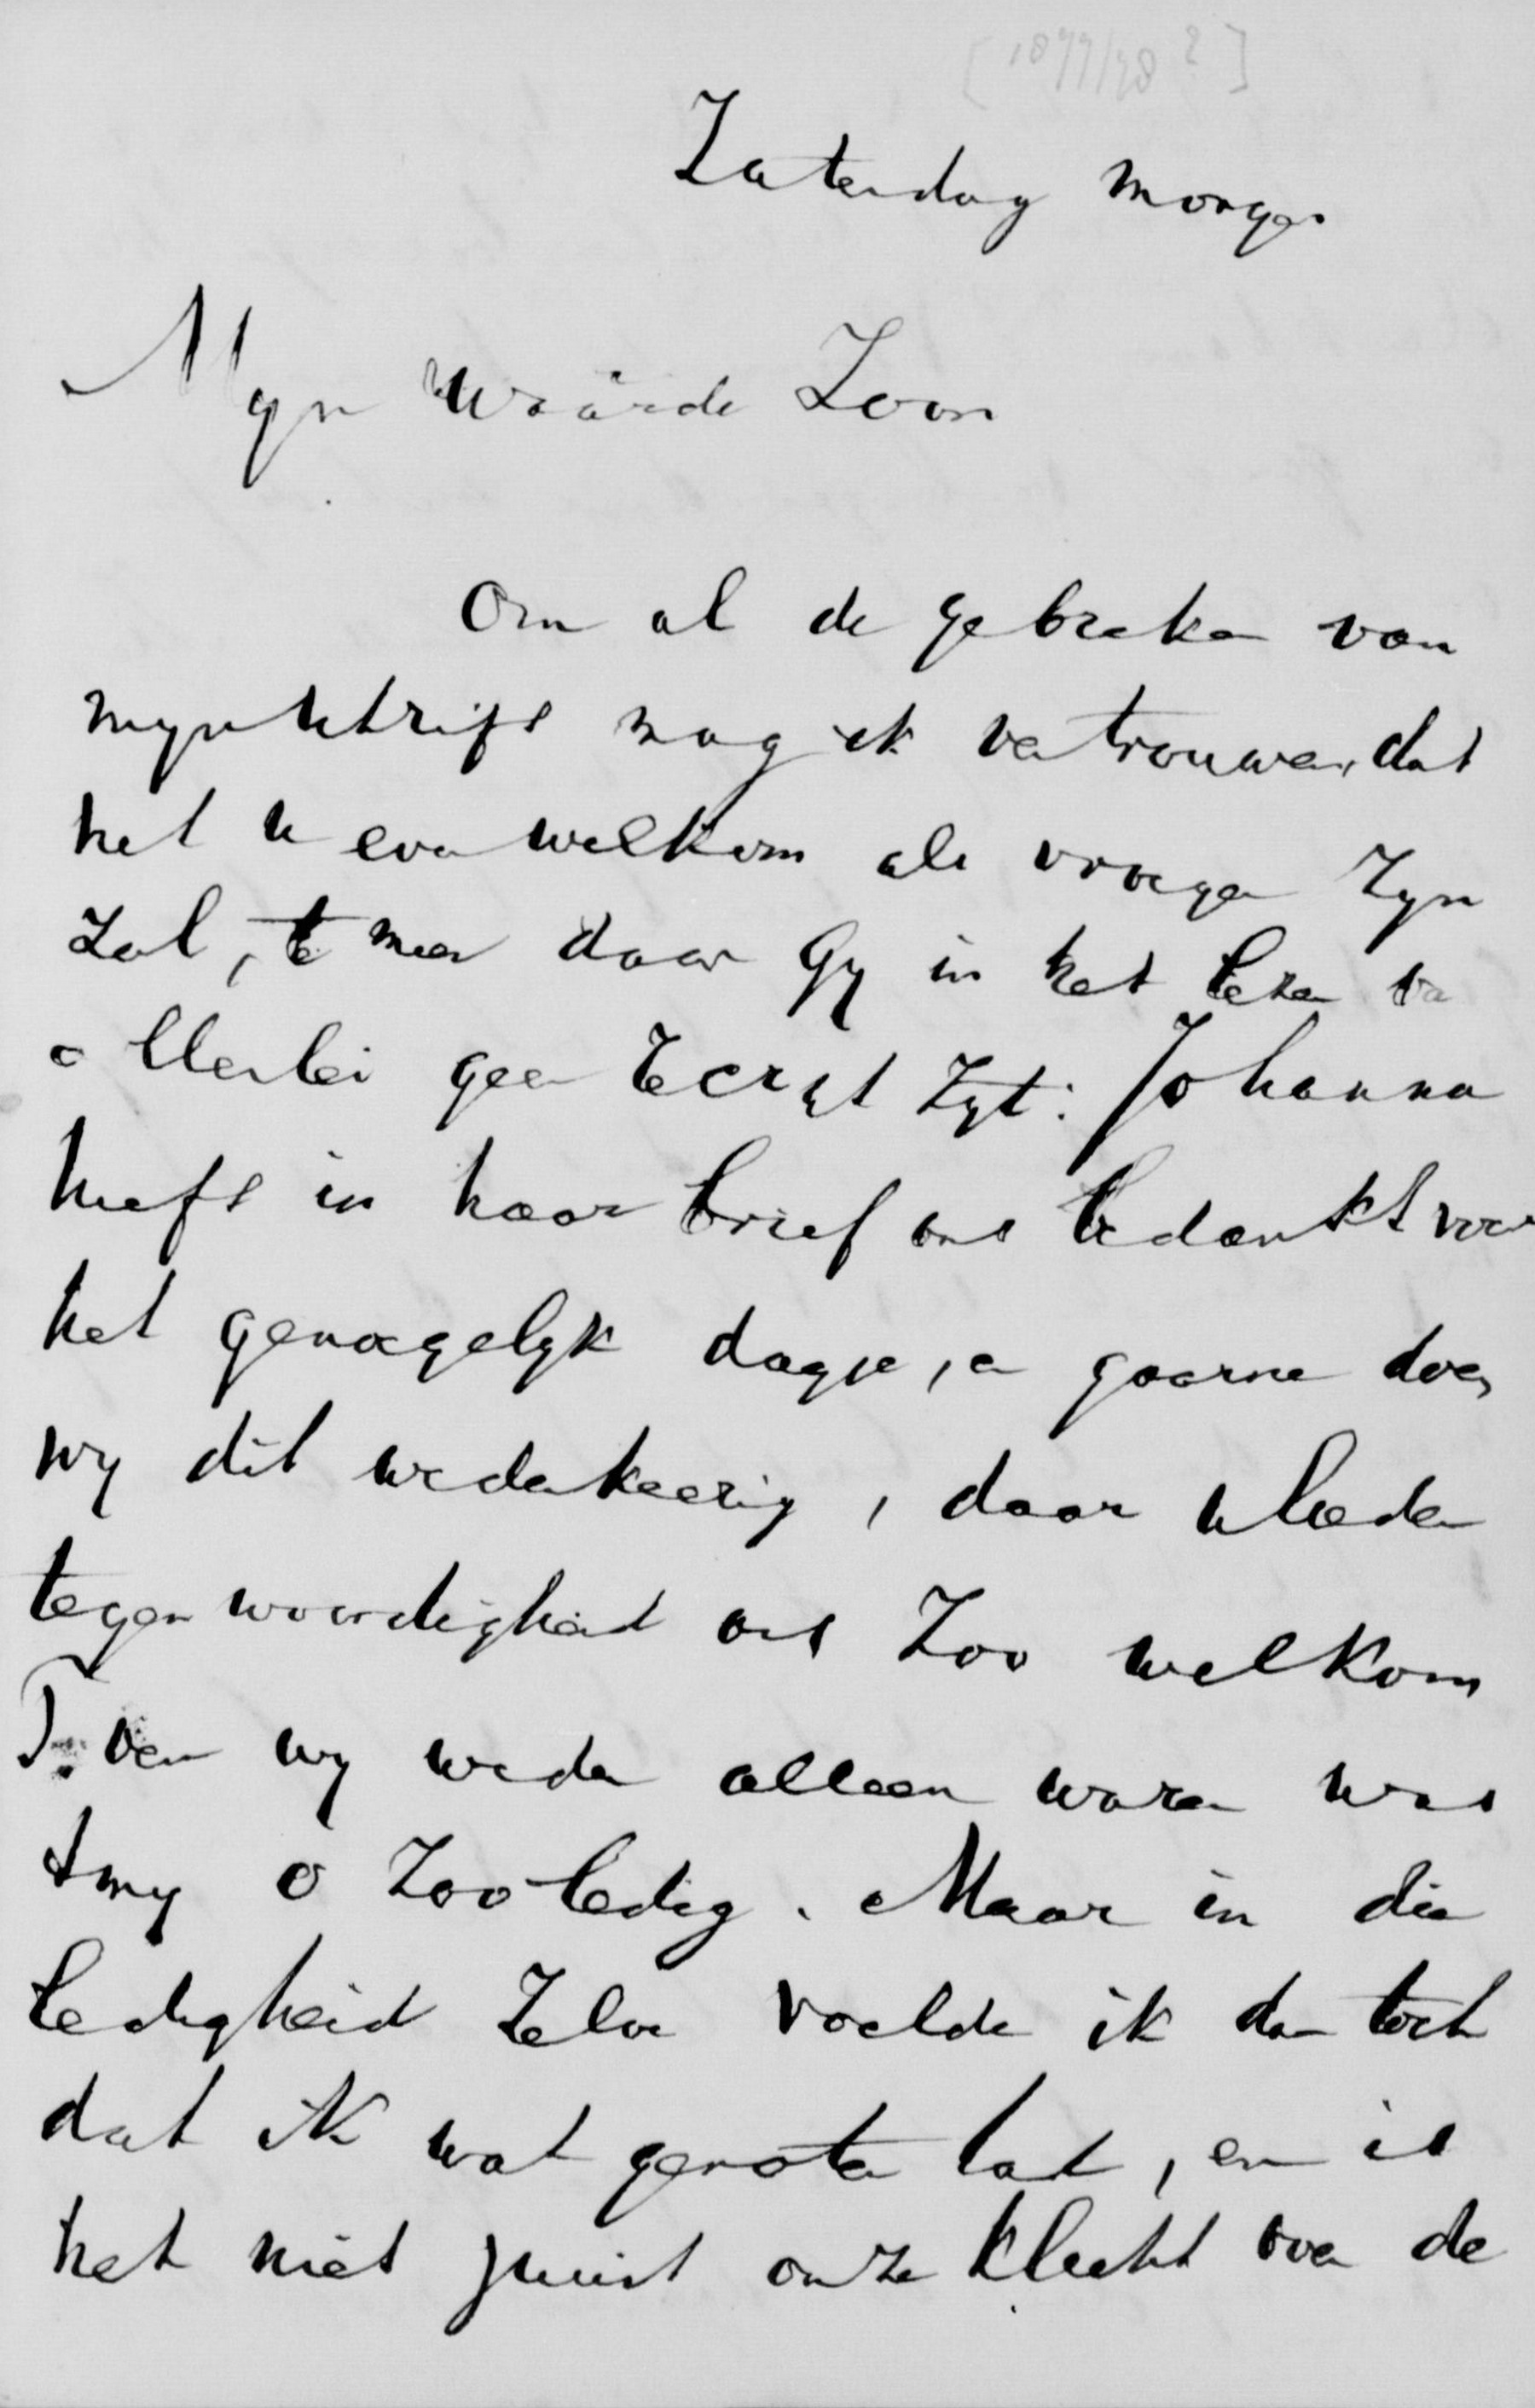 [1877/78?]
Zaterdag morgen
Myn Waarde Zoon
Om al de gebreken van
myn schrift mag ik vertrouwen, dat
het u even welkom als vroeger zyn
zal, te meer daar Gy in het lezen van
allerlei geen Leek zyt: Johanna
heeft in haar brief ons bedankt voor
het genoegelyk dagje, en gaarne doen
wy dit wederkeerig, daar Uleder
tegenwoordigheid ons zoo welkom
Toen wy weder alleen waren was
t my o zoo ledig. Maar in die
ledigheid zelve voelde ik dan toch
dat ik wat genoten had, en is
het niet juist onze klacht over de